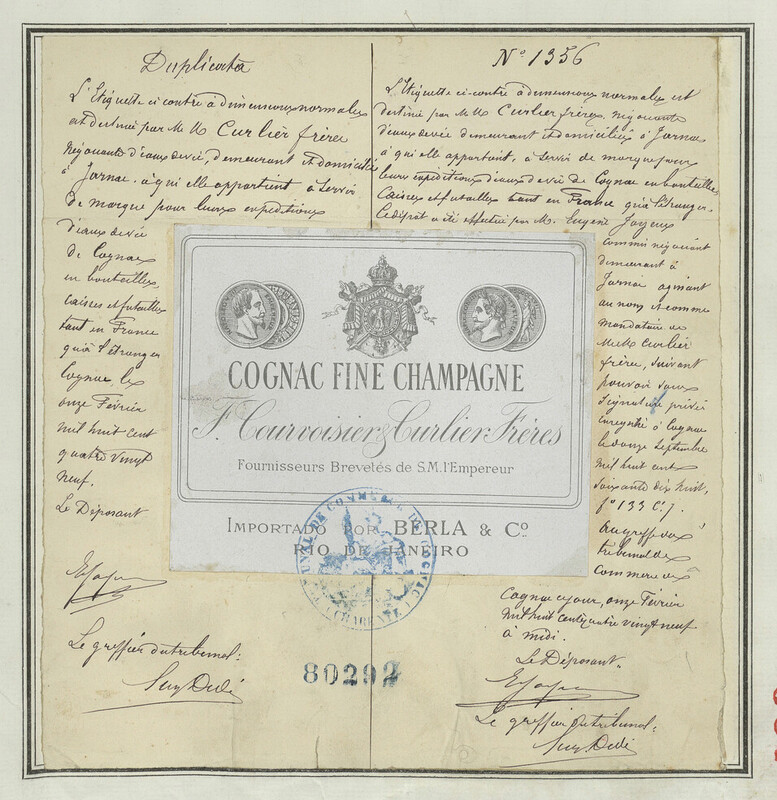 Duplicata
L'Etiquette ci contre à dimensions normales
est destinée par M M Curlier frères
Négociants d'eaux de vie, demeurant et domiciliés
à Jarnac. à qui elle appartient à servir
de marque pour leurs expéditions
d'eaux de vie
de Cognac
en bouteilles
Caisses et futailles
tant en France
qu'à l'étranger
Cognac le
onze Février
Mil huit cent
quatre vingt
neuf.
Le Déposant
Le greffier du tribunal:
N° 1356
L'Etiquette ci-contre à dimensions normales est
destinée par M M Curlier frères, négociants
d'eaux de vie demeurant et domiciliés à Jarnac
à qui elle appartient, à servir de marque pour
leurs expéditions d'eaux de vie de Cognac en bouteilles
Caisses et futailles tant en France qu'à l'étranger.
Ce dépôt a été effectué par M. Eugène Joyeux
commis négociant
demeurant à
Jarnac agissant
au nom et comme
mandataire de
M M Curlier
frères, suivant
pouvoir sous
signature privée
Enregistré à Cognac
le douze Septembre
Mil huit cent
soixante dix huit,
f° 133 C. 7.
Au greffe du
tribunal de
Commerce de
Cognac ce jour, onze Février
Mil huit cent quatre vingt neuf
à midi.
Le Déposant.
Le greffier du tribunal.
COGNAC FINE CHAMPAGNE
F. Courvoisier & Curlier Frères
Fournisseurs Brevetés de S.M. l'Empereur
IMPORTADO POR BERLA & Cº.
RIO DE JANEIRO
TRIBUNAL DE COMMERCE DE COGNAC
(CHARENTE)
80292